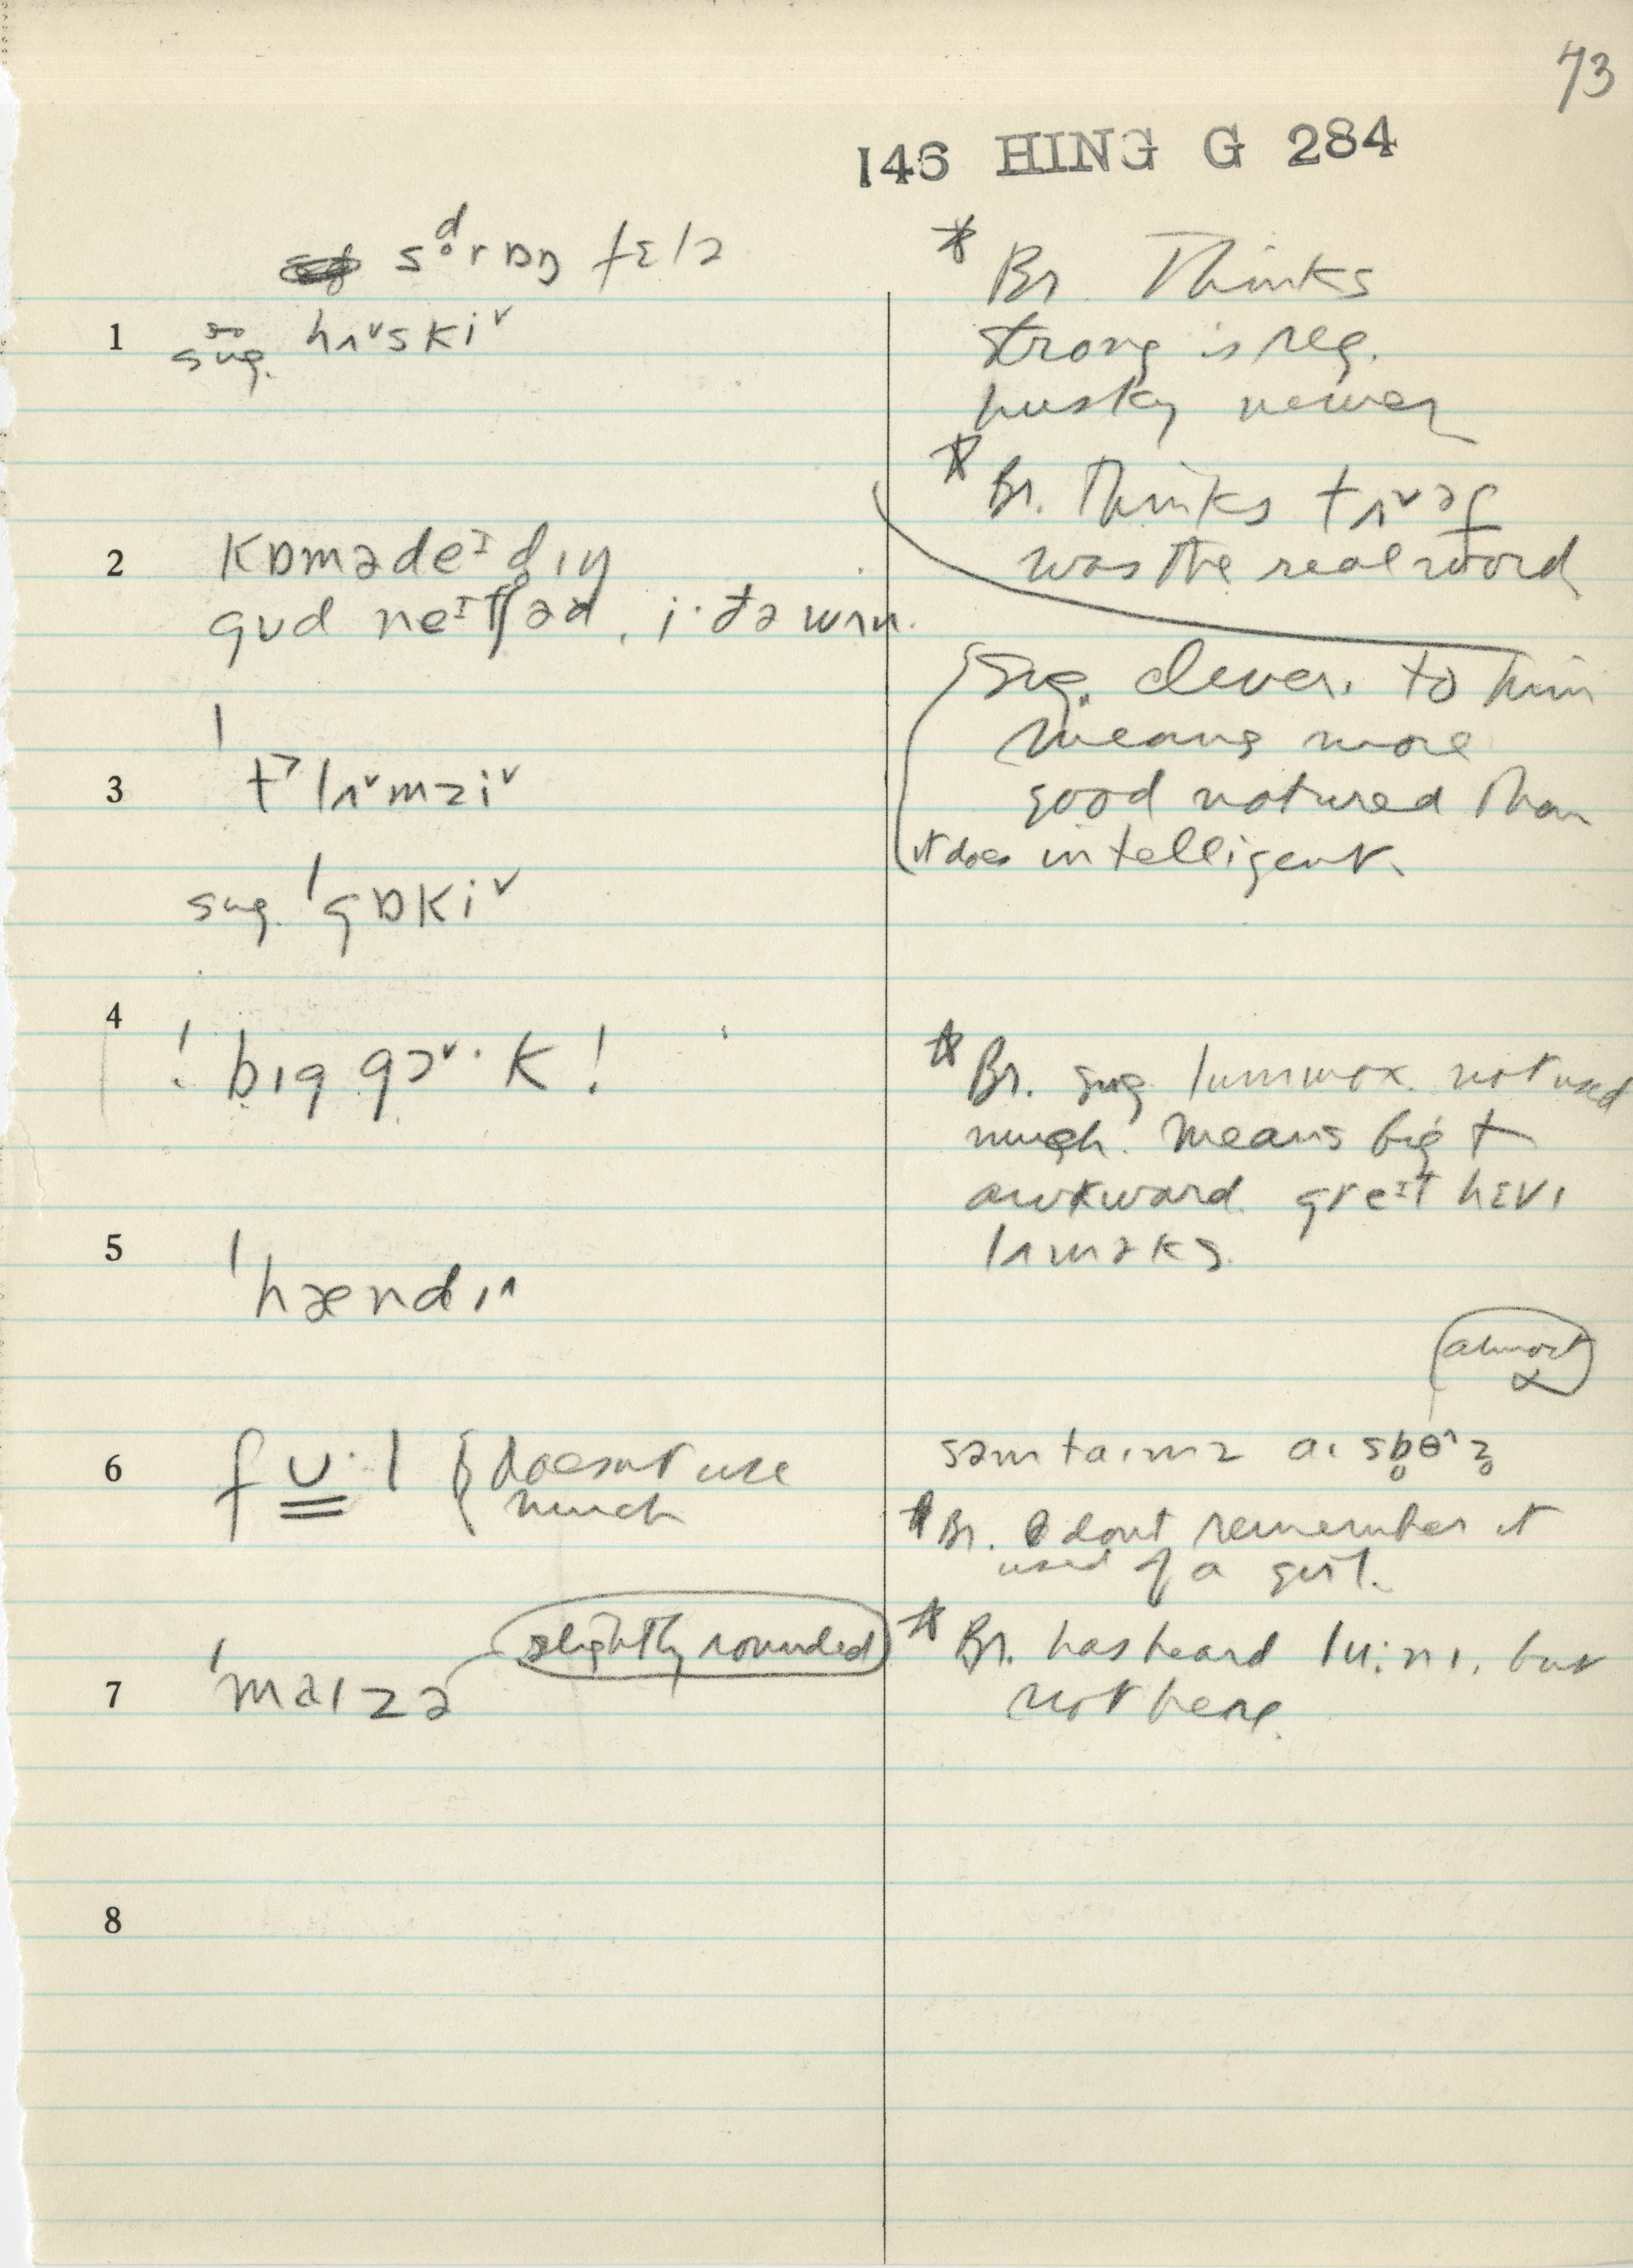 73
146 HING G 284
sd̥rɒŋ fɛlə
1 so sug. hʌ˅skiˇ
2 kɒmədeɪd̥ɪŋ
gud neɪtʃəd, i·ðə wʌn.
3 ' t˃lʌ˅mziˇ
sug. 'gɒkiˇ
4 ! bɪg gɔˇ·k!
5 'hændɪ^
6 f u̳· l { doesnt use
much
7 'maɪzə slightly rounded
8
* Br. Thinks
strong is reg.
husky newer
* Br. Thinks tʌˇəf
was the real word
Sug. clever. to him
means more
good natured than
it does intelligent.
* Br. sug. lummox. not used
much. Means big +
awkward. greɪt hɛvɪ
lʌməks.
almost
ɑ
səmtaɪmz aɪ
* Br. I dont remember it
used of a girl.
* Br. has heard lu:nɪ, but
not here.